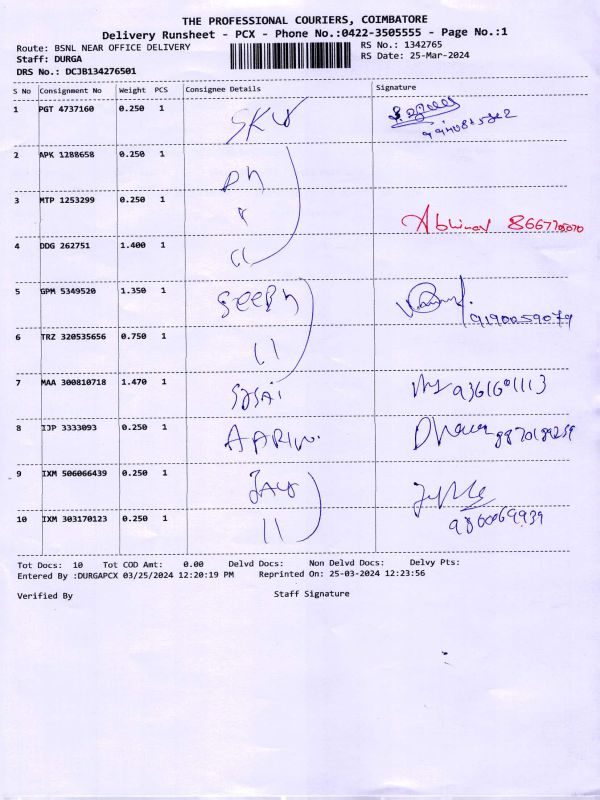 THE PROFESSIONAL COURIERS, COIMBATORE
Delivery Runsheet - PCX - Phone No.:0422-3505555 - Page No.:1
Route: BSNL NEAR OFFICE DELIVERY RS No.: 1342765
Staff: DURGA RS Date: 25-Mar-2024
DRS No.: DCJB134276501
S No Consignment No Weight PCS Consignee Details Signature
1 PGT 4737160 0.250 1 SKV
2 APK 1288658 0.250 1
3 MTP 1253299 0.250 1 Abhinav
4 DDG 262751 1.400 1 11
5 GPM 5349520 1.350 1 9190059079
6 TRZ 320535656 0.750 1 11
7 MAA 300810718 1.470 1 9361601113
8 IJP 3333093 0.250 1
9 IXM 506066439 0.250 1 JAY
10 IXM 303170123 0.250 1 11
Tot Docs: 10 Tot COD Amt: 0.00 Delvd Docs: Non Delvd Docs: Delvy Pts:
Entered By :DURGAPCX 03/25/2024 12:20:19 PM Reprinted On: 25-03-2024 12:23:56
Verified By Staff Signature